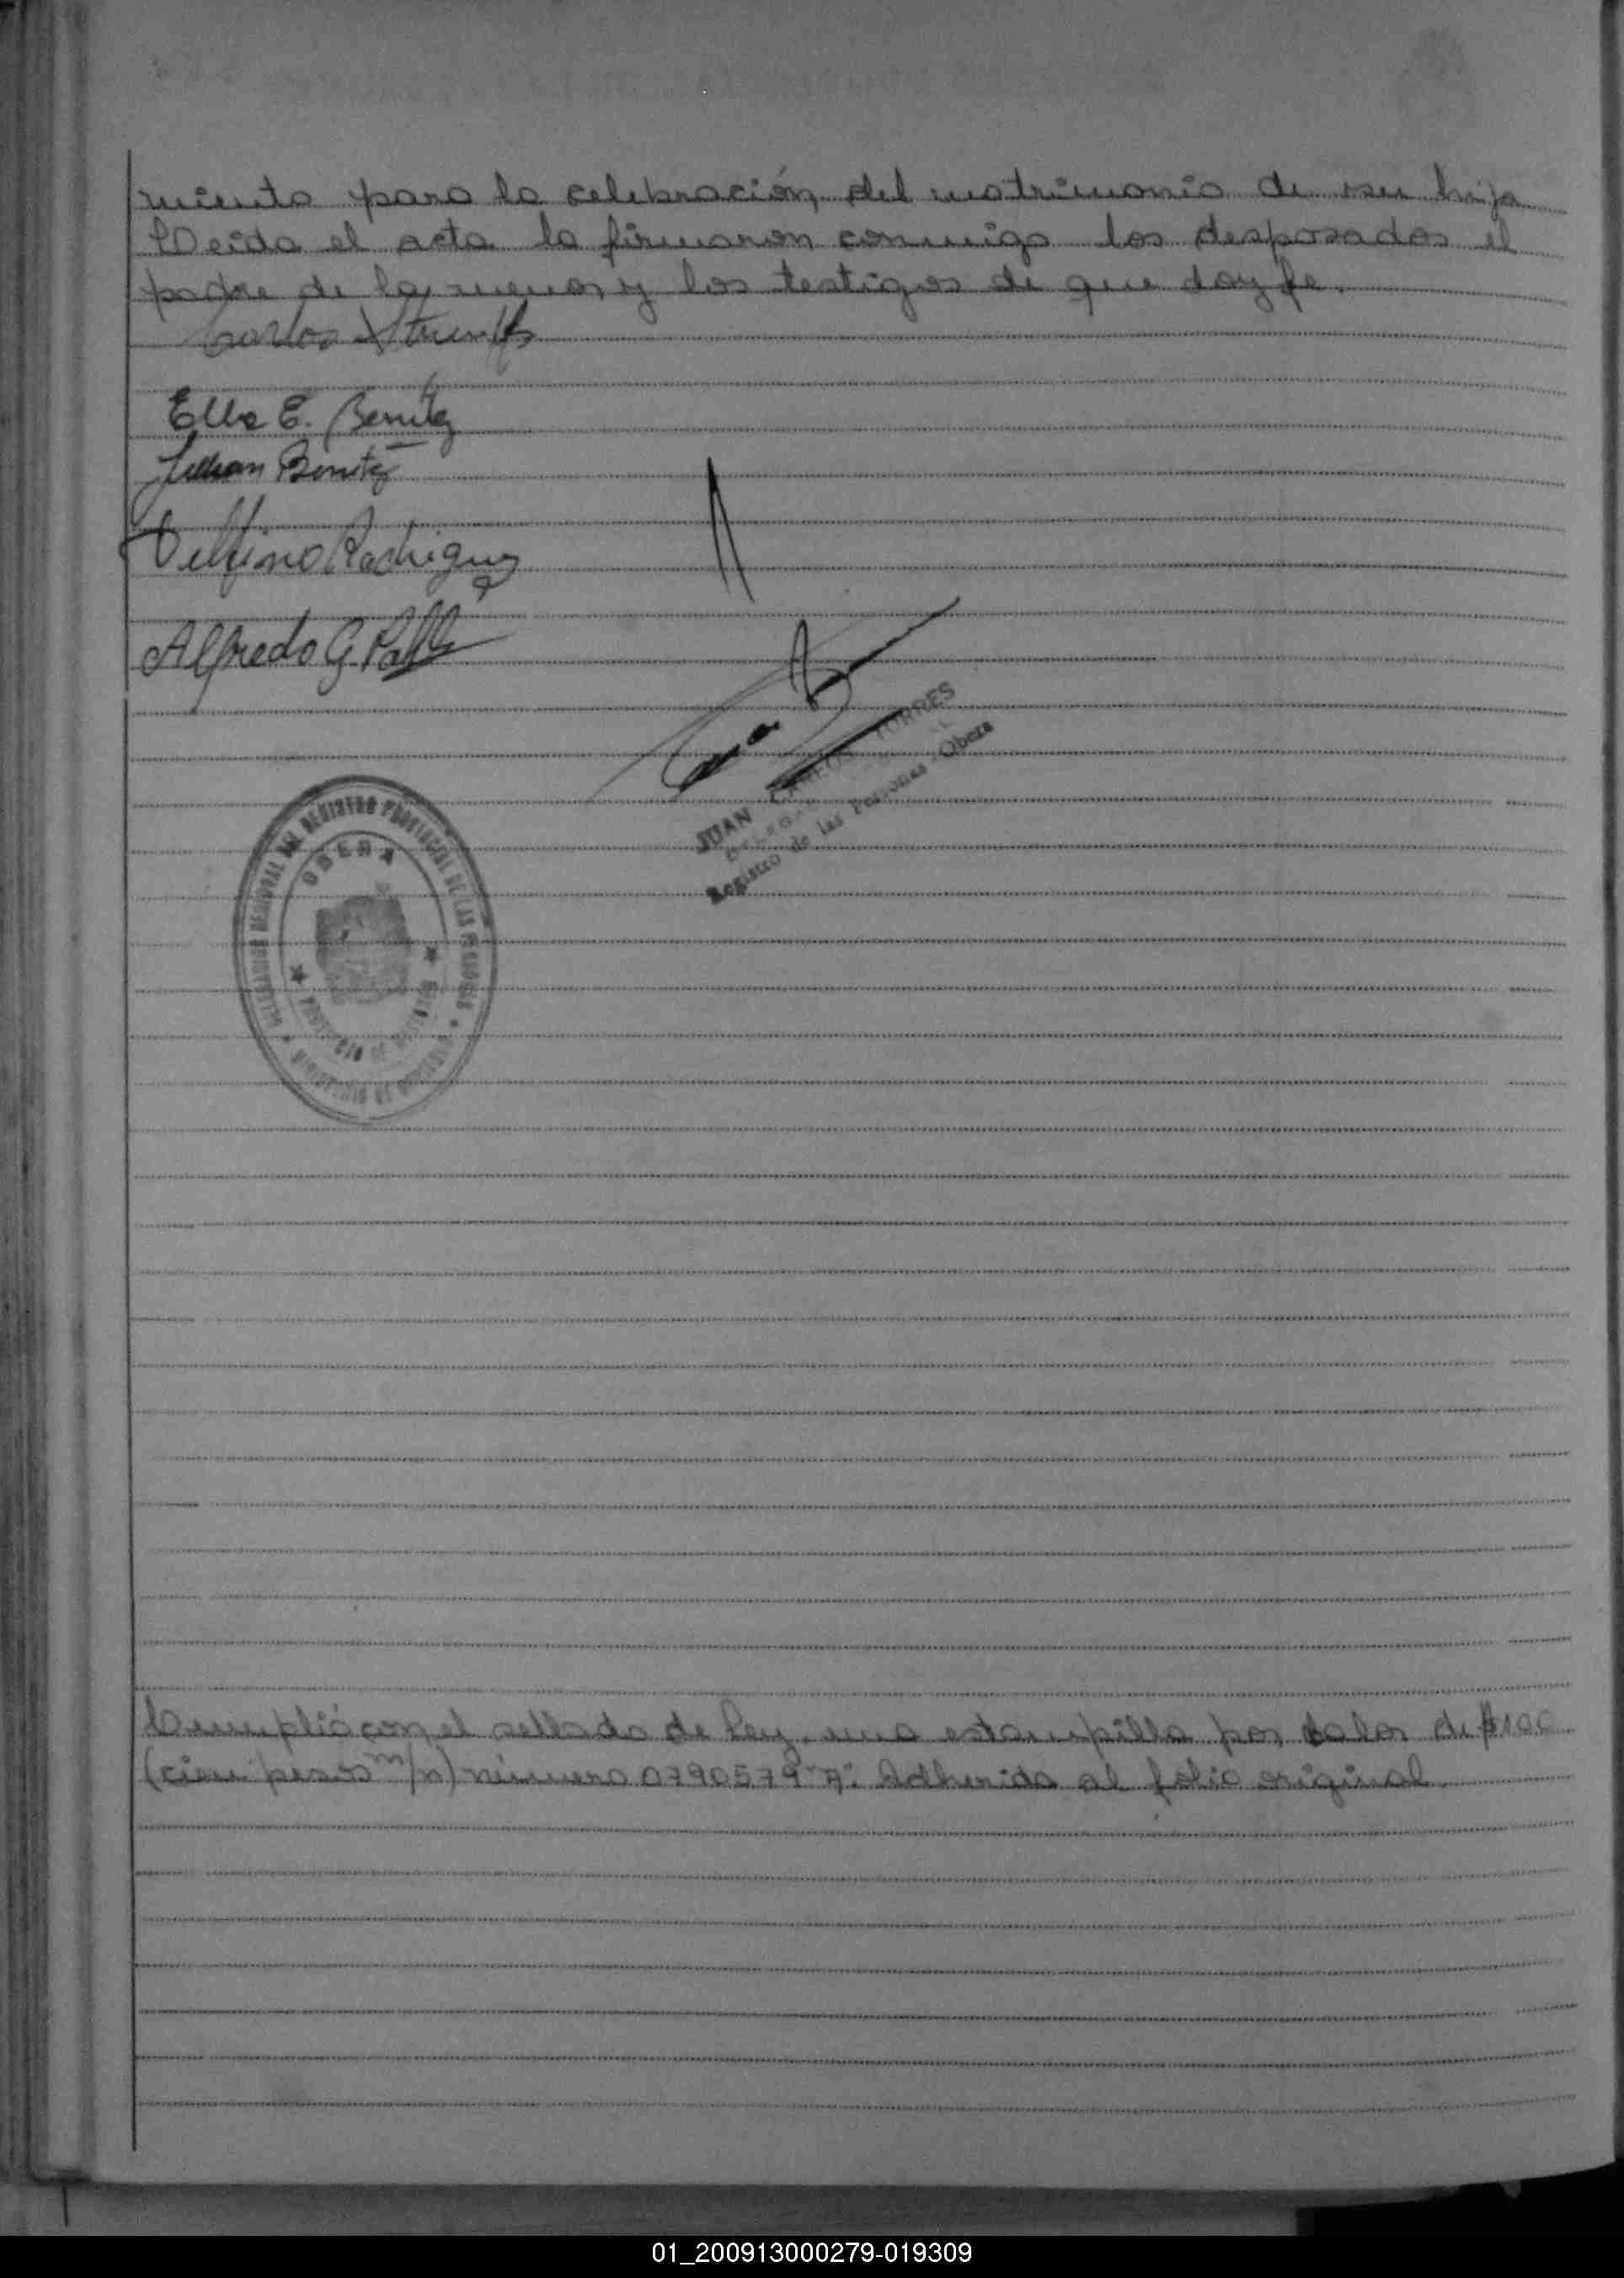 miento para la celebración del matrimonio de su hija
Leida el acta la firmaron conmigo los desposados el
padre de la menor y los testigos de que doy fe.
Carlos
Elba E. Benitez
Julian Benitez
Delfino Rodriguez
Alfredo G.
JUAN CARLOS TORRES
DELEGADO
Registro de las Personas Obera
DELEGACION REGIONAL DEL REGISTRO PROVINCIAL DE LAS PERSONAS
OBERA
PROVINCIA DE MISIONES
MINISTERIO DE GOBIERNO
Cumplió con el sellado de Ley, una estampilla por valor de $100
(cien pesos m/n) número 0790579 "A". Adherida al folio original
01_200913000279-019309